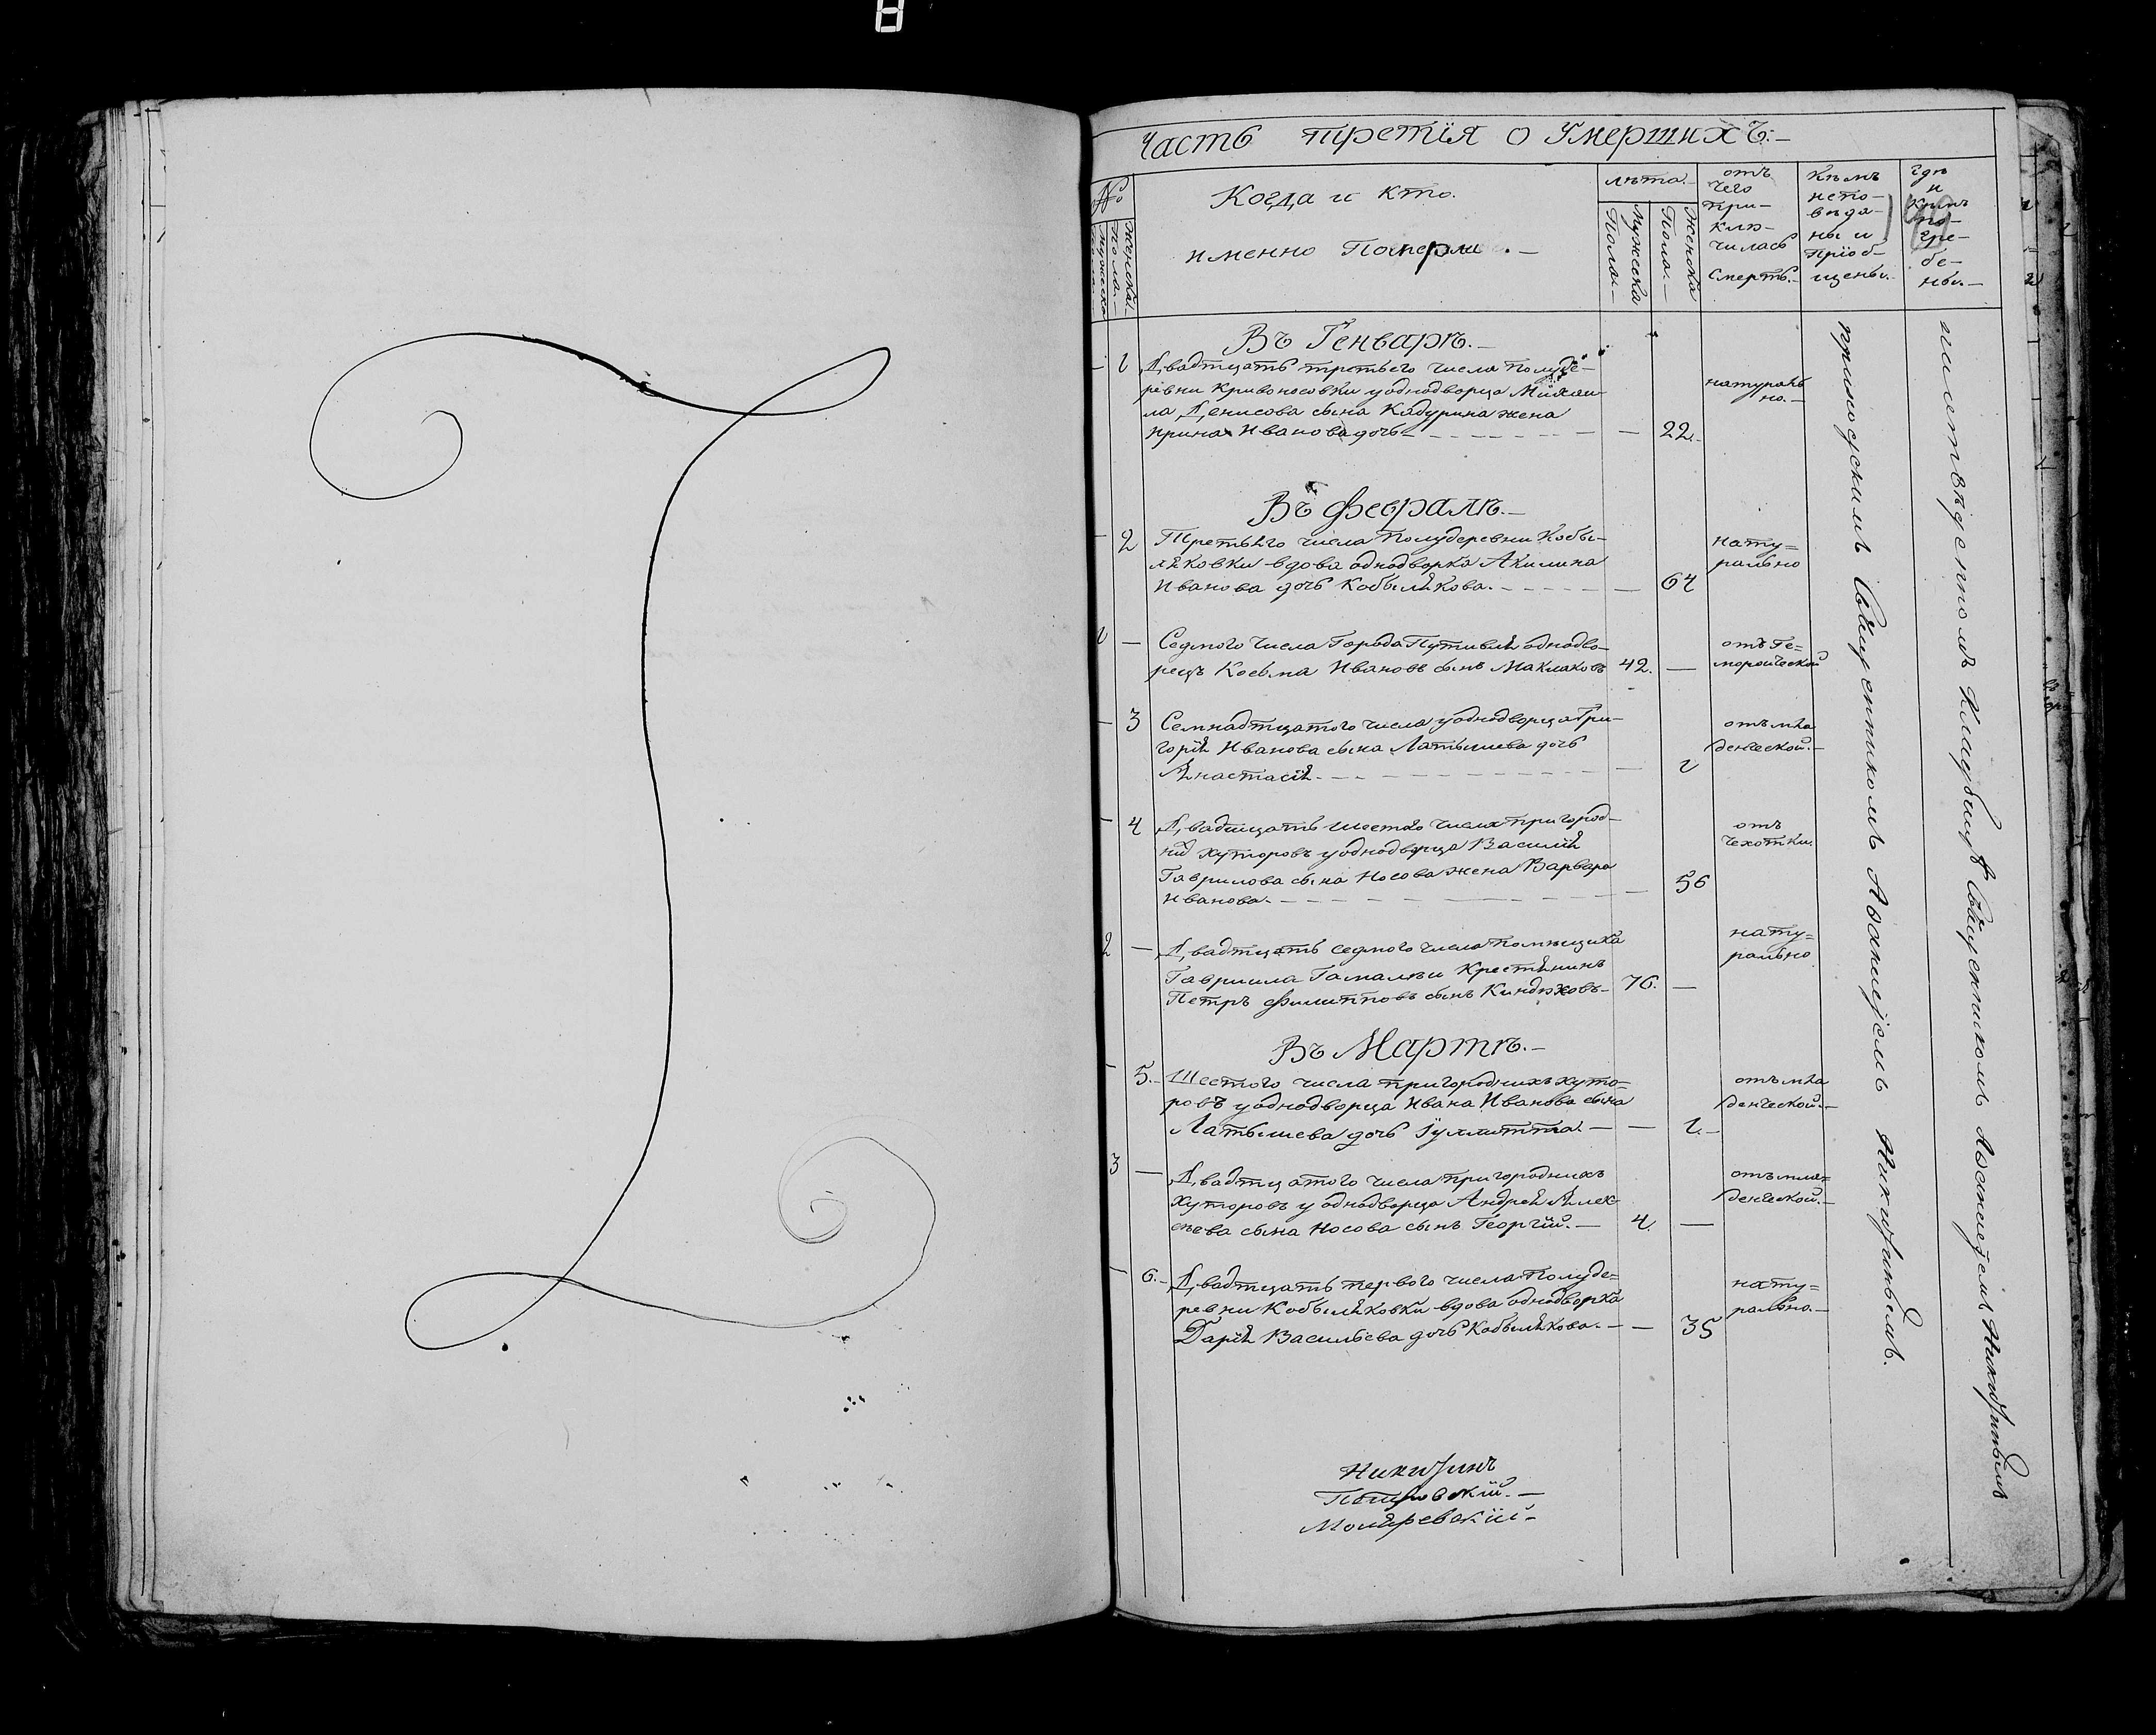 Часть третїя о Умершихъ:—
№
Мужеска пола.—
Женска пола.—
Когда и кто.
именно Померли.—
лѣта.—
Мужеска Пола.—
Женска Пола.—
отъ
чего
при—
клю—
чилась
Смерть.—
Кѣмъ
испо—
вѣда—
ны и
прїоб—
щены.—
гдѣ
и
кѣмъ
по—
гре—
бе—
ны.—
Въ Генварѣ.—
— 1 Двадтцать третьего числа полуде—
ревни Кривоносовки у однодворца Михаи—
ла Денисова сына Кадурина жена
Ирина Иванова дочь — — 22.—
натураль
но.—
Въ Февралѣ.—
— 2 Третьяго числа полудеревни Кобы—
ляковки вдова однодворка Акилина
Иванова дочь Кобылякова.— — 64
нату=
рально
1 — Седмого числа Города Путивля однодво—
рецъ Косьма Ивановъ сынъ Маклаковъ 42. —
отъ Ге=
мороической
— 3 Семнадтцатого числа у однодворца Гри—
горїя Иванова сына Латышева дочь
Анастасїя.— — 1
отъ мла
денческой.—
— 4 Двадтцать шестаго числа пригород—
ных хуторовъ у однодворца Василїя
Гаврилова сына Носова жена Варвара
Иванова.— — 56
отъ
чехотки.
2 — Двадтцать седмого числа помѣщика
Гавриила Гамалѣи Крестянинъ
Петръ Филипповъ сынъ Киндюховъ— 76. —
нату=
рально
Въ Мартѣ.—
— 5.— Шестого числа пригородныхъ хуто=
ровъ у однодворца Ивана Иванова сына
Латышева дочь Іулитта.— — 1.—
отъ мла
денческой.—
3 — Двадтцатого числа пригородныхъ
хуторовъ у однодворца Андрея Алек
сѣева сына Носова сынъ Георгїй.— 4. —
отъ мла=
денческой.—
— 6.— Двадтцать первого числа полуде=
ревни Кобыляковки вдова однодворка
Дарїя Васильева дочь Кобылякова.— — 35
нату=
рально.—
приходскимъ Священникомъ Никитинымъ.
кладбищѣ Священникомъ Никитинымъ
Никитинъ